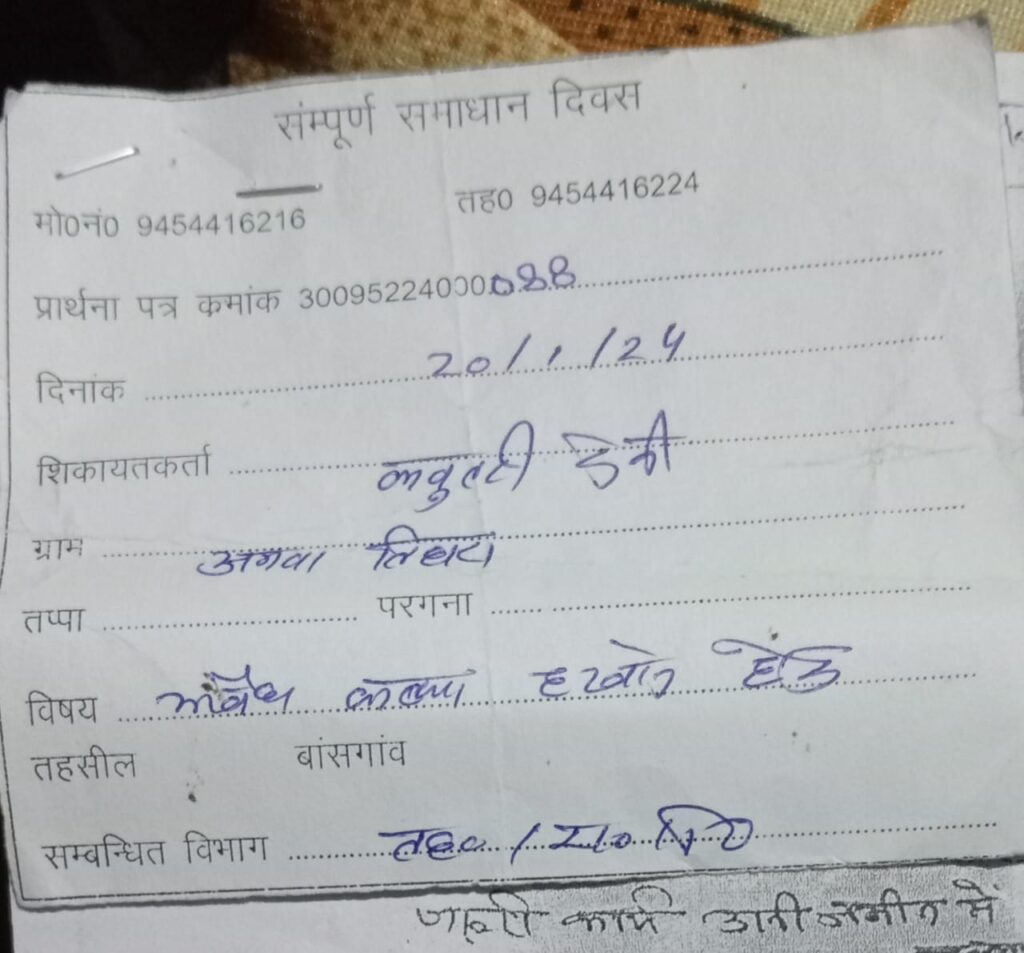 संम्पूर्ण समाधान दिवस
मो0नं0 9454416216 तह0 9454416224
प्रार्थना पत्र कमांक 30095224000088
दिनांक 20/1/24
शिकायतकर्ता देवी
ग्राम
तप्पा परगना
विषय अवैध कब्जा हटवाने हेतु
तहसील बांसगांव
सम्बन्धित विभाग तह0 /
कार्य उसी जमीन में